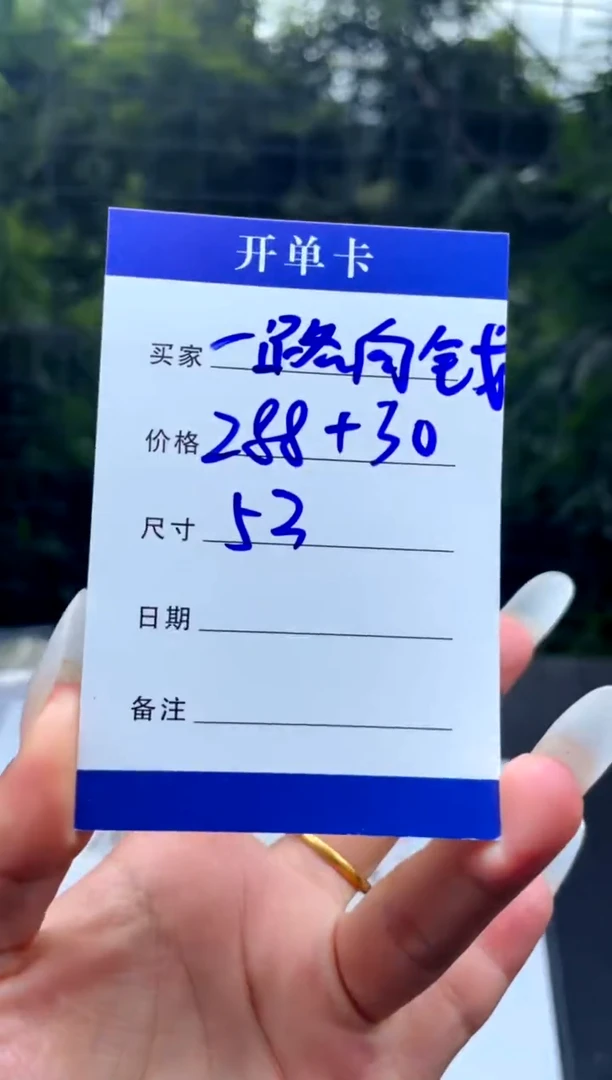 开单卡
买家 一路向钱
价格 288+30
尺寸 53
日期
备注